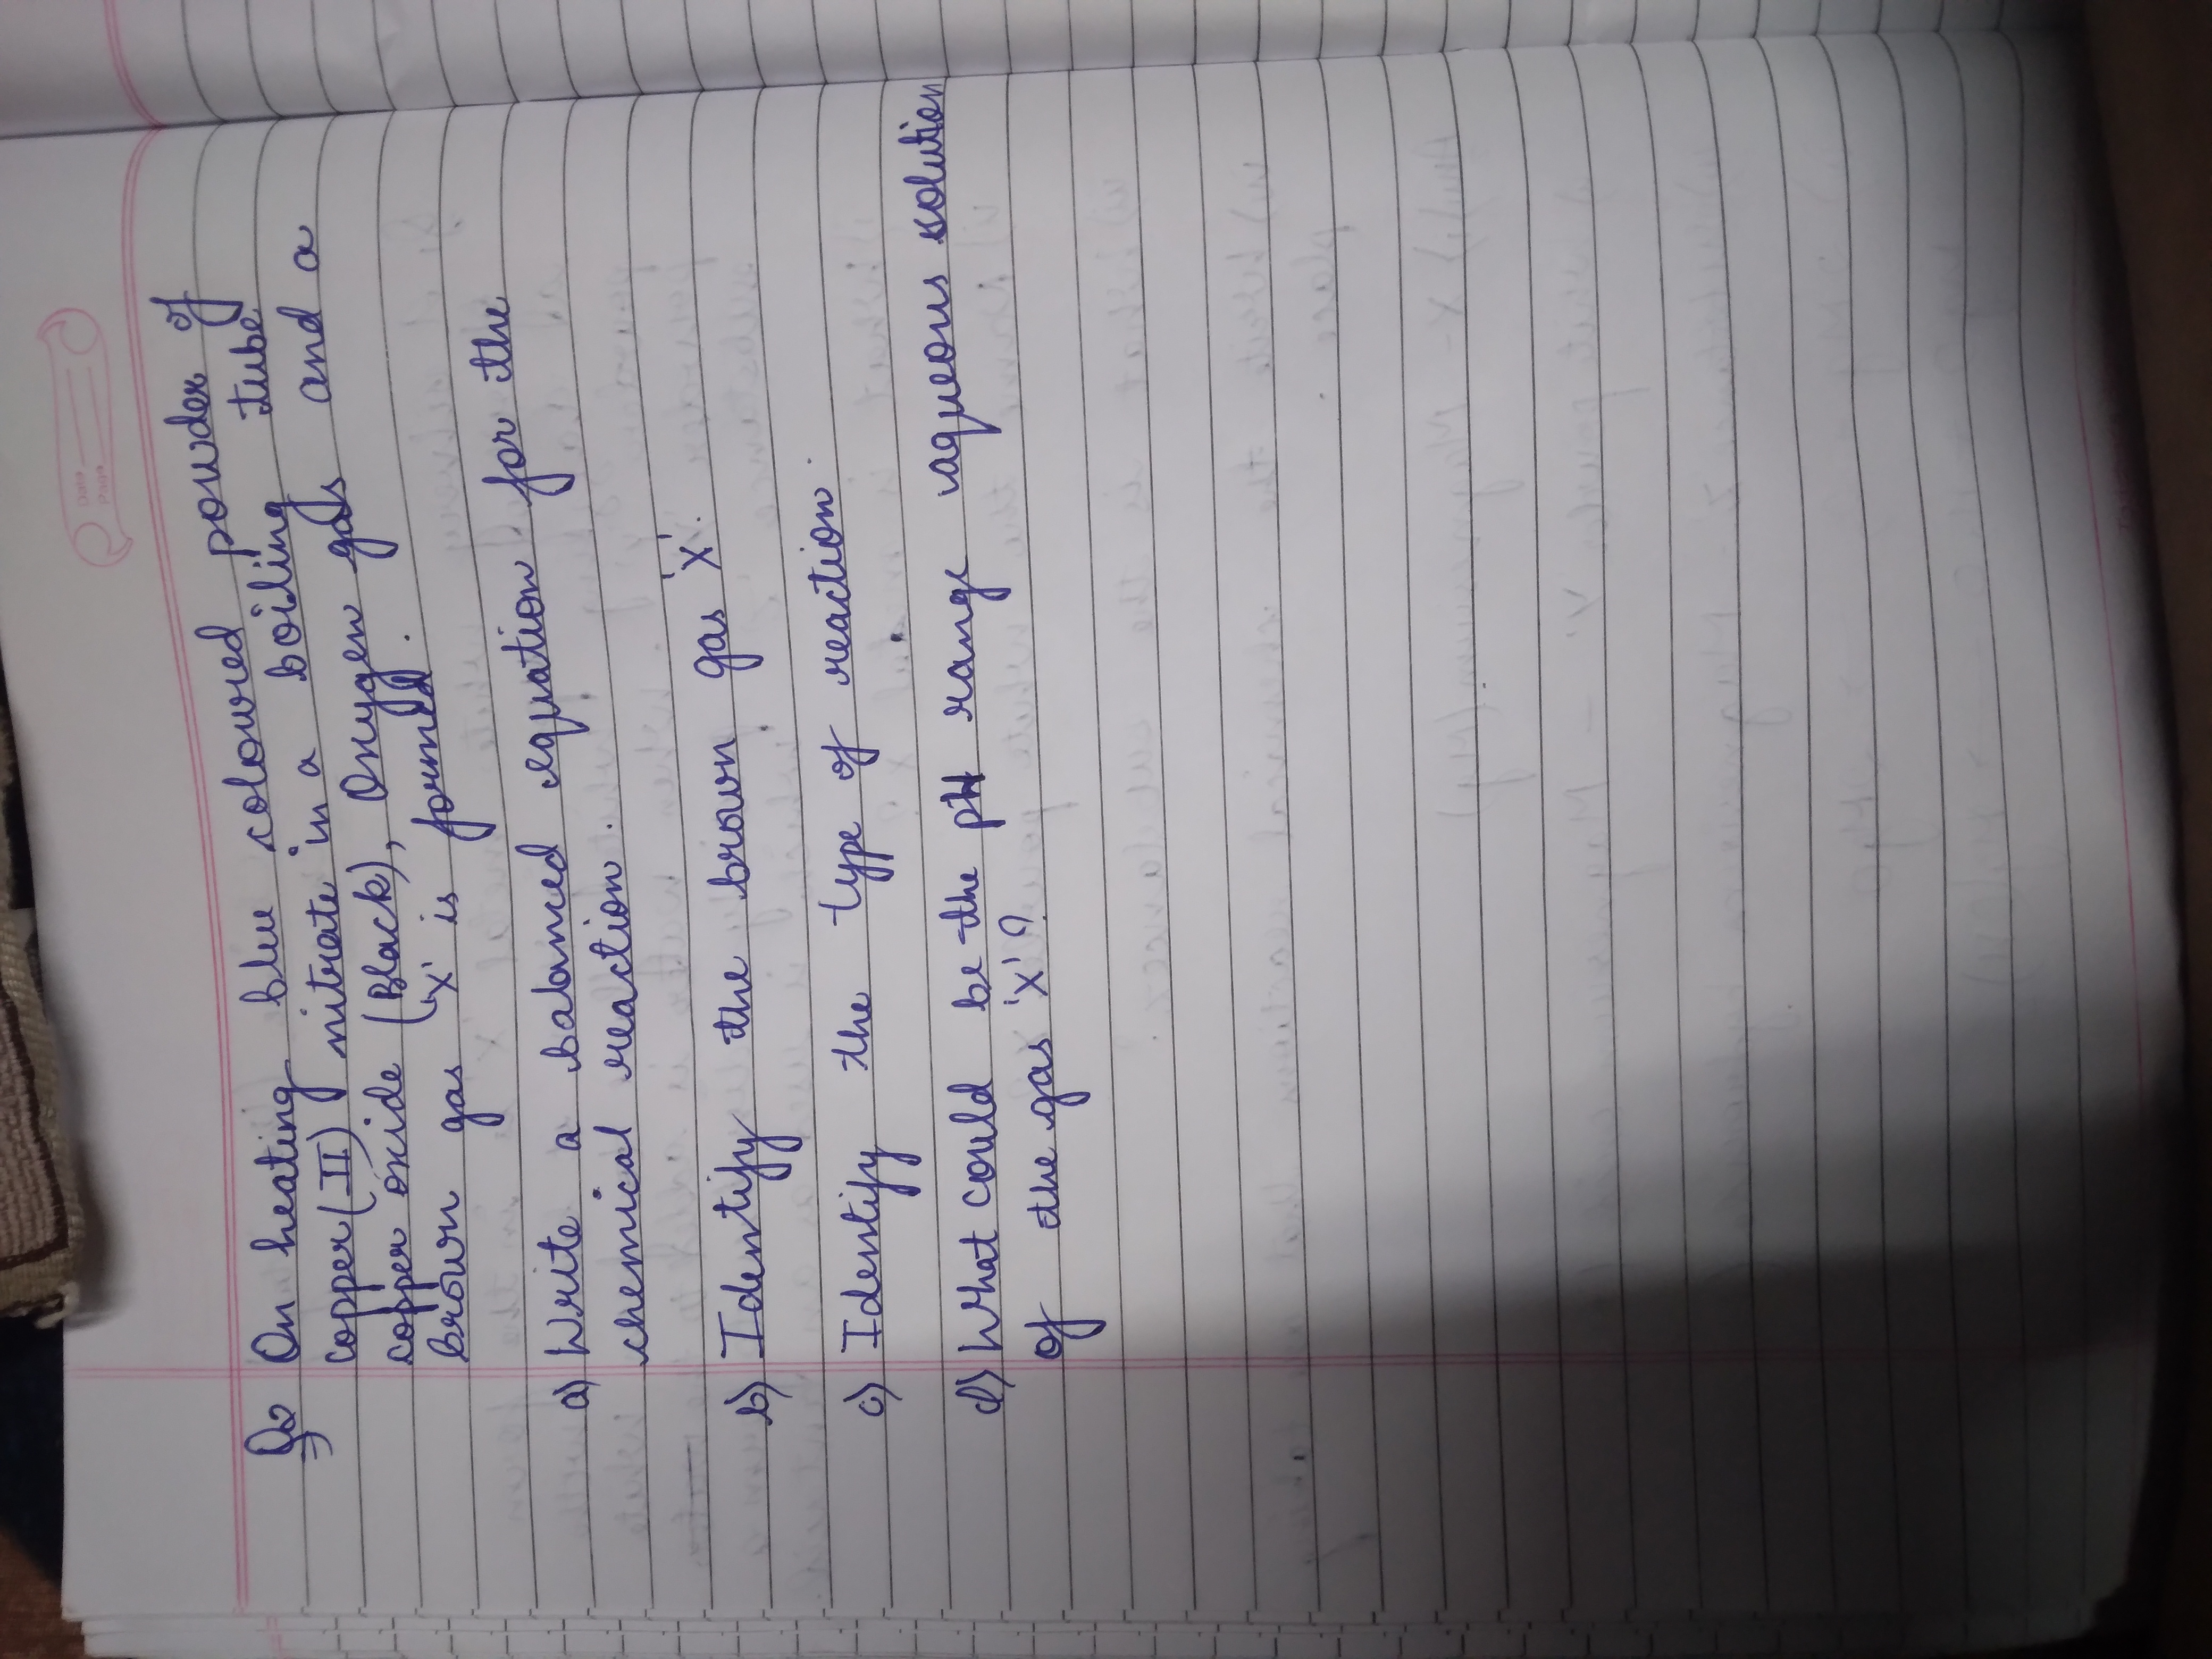 Date
Page
Q2 On heating blue coloured powder of
copper (II) nitrate in a boiling tube
copper oxide (Black), Oxygen gas and a
brown gas 'X' is formed.
a) Write a balanced equation for the
chemical reaction.
b) Identify the brown gas 'X'.
c) Identify the type of reaction.
d) What could be the pH range aqueous solution
of the gas 'X'?